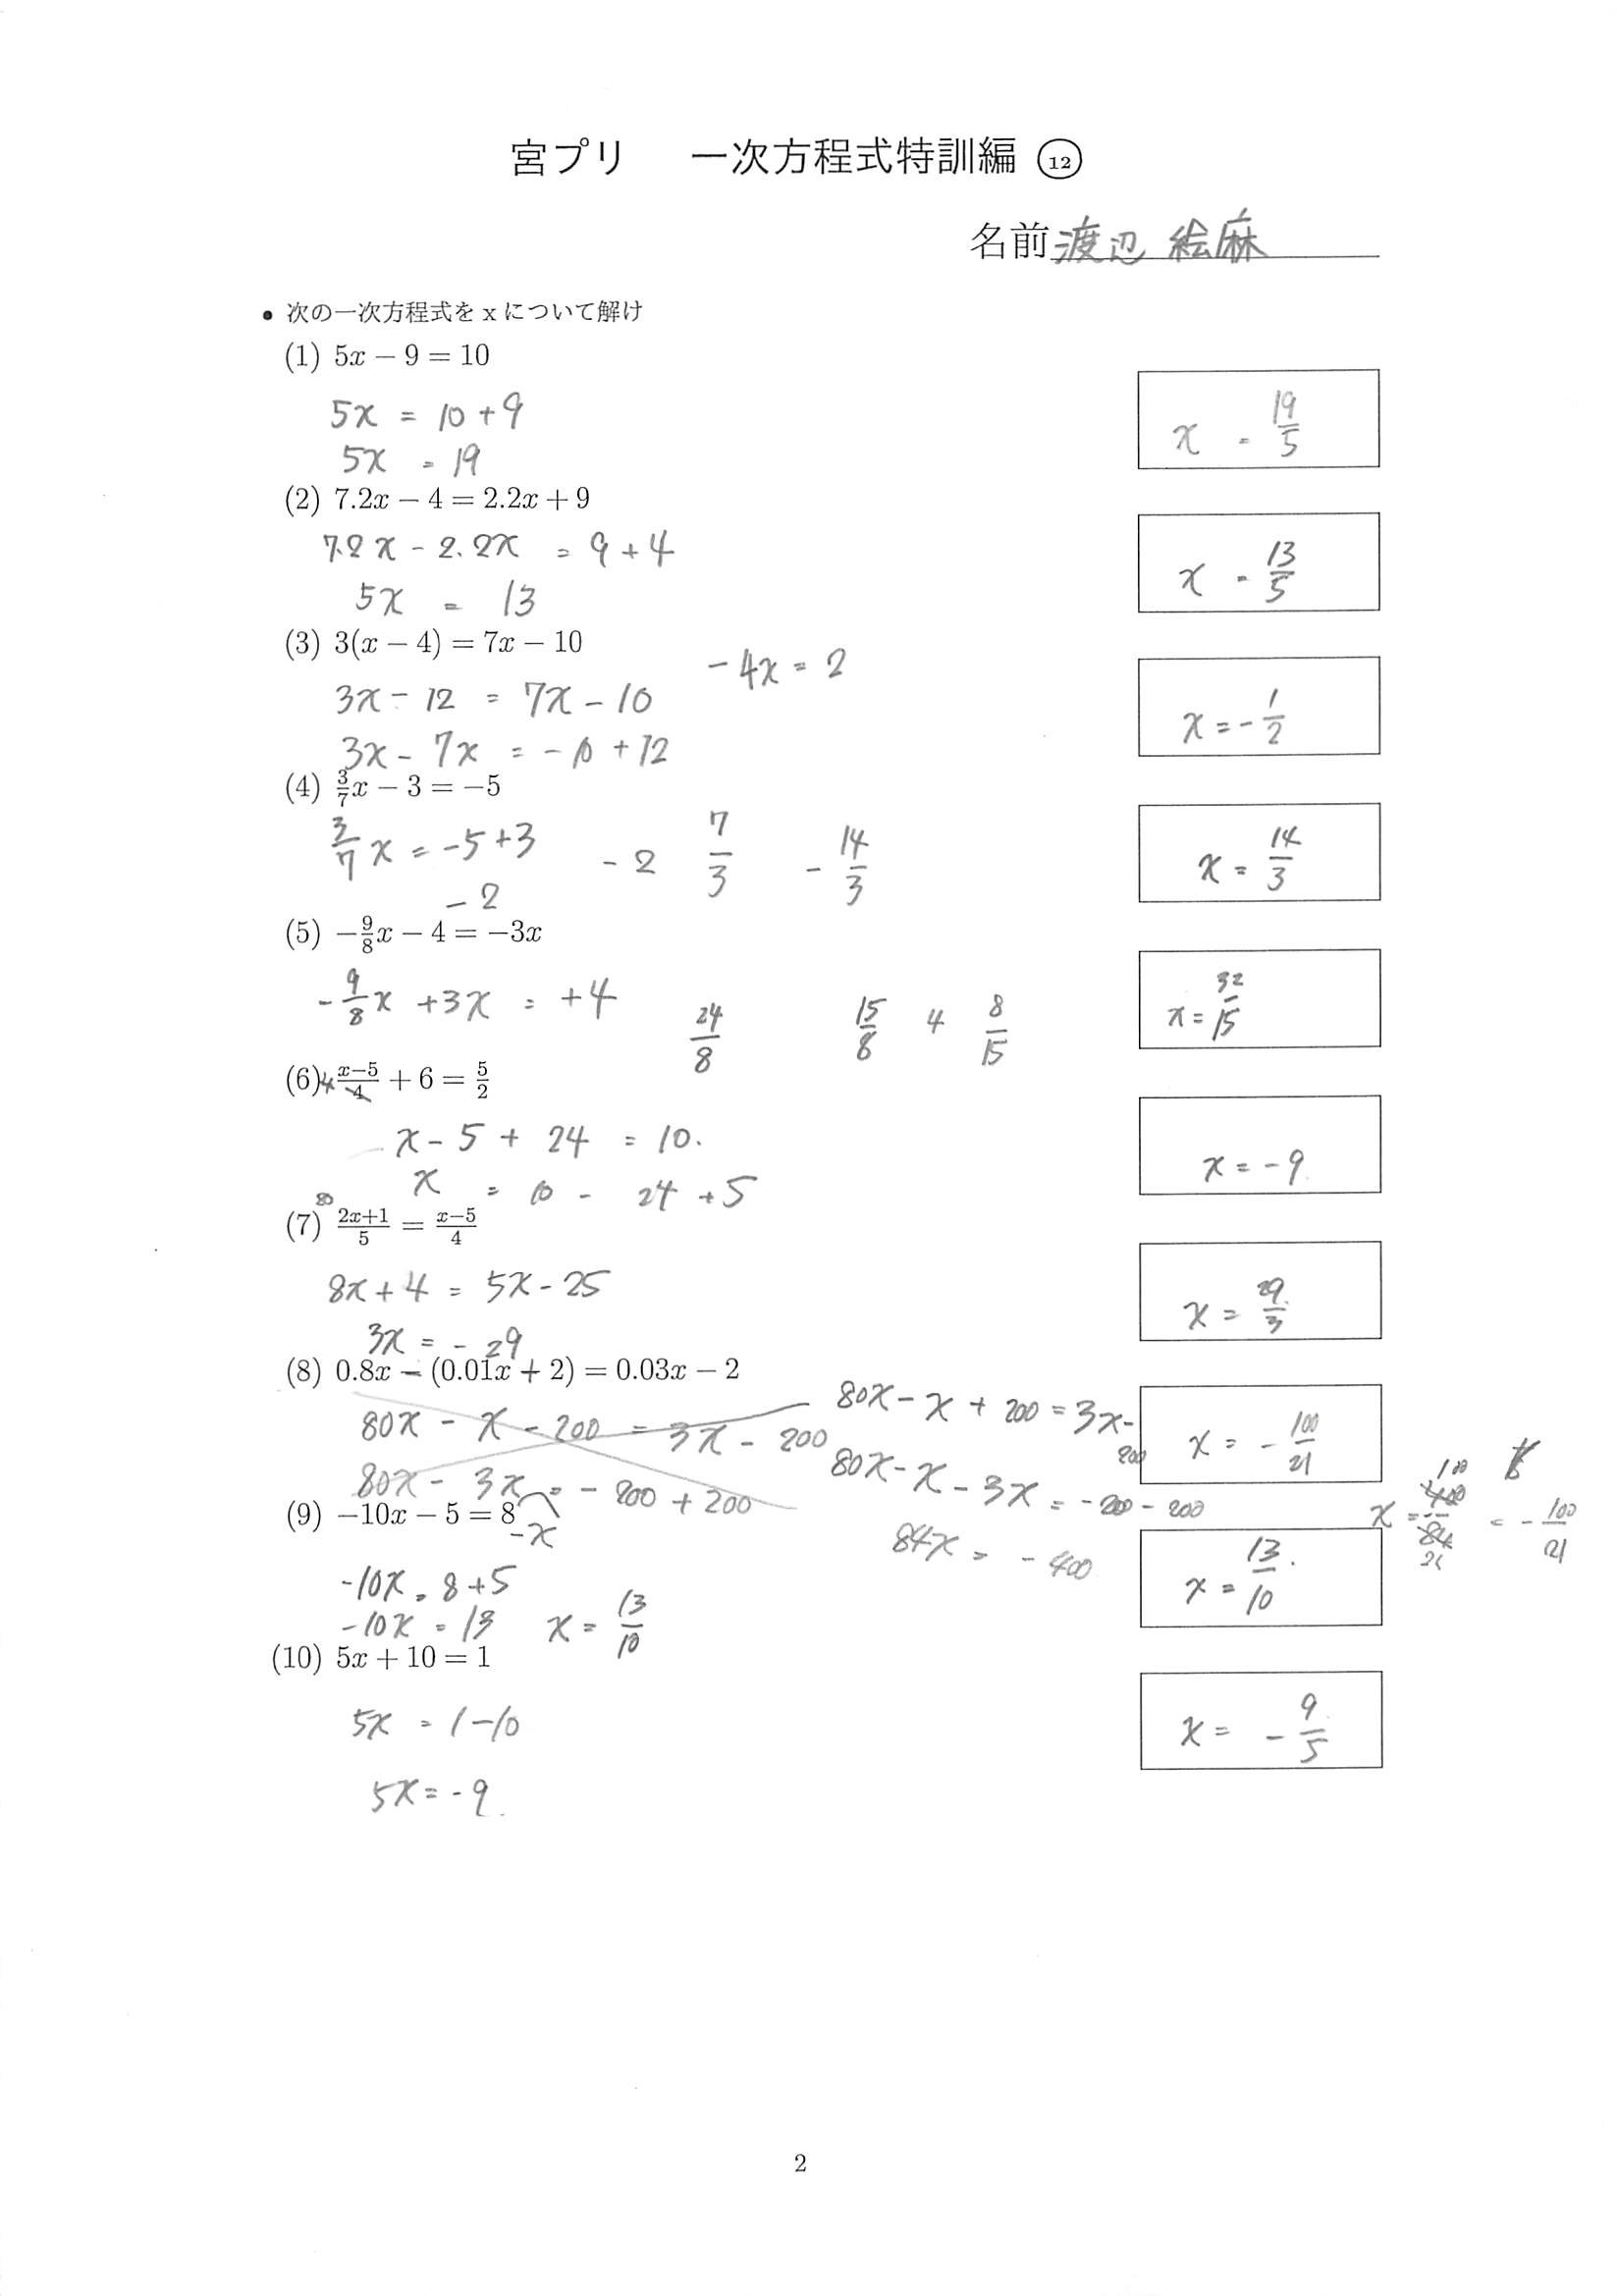 宮プリ 一次方程式特訓編 ⑫
名前 渡辺 絵麻
• 次の一次方程式をxについて解け
(1) 5x − 9 = 10
5x = 10 + 9
5x = 19
x = 19/5
(2) 7.2x − 4 = 2.2x + 9
7.2x - 2.2x = 9 + 4
5x = 13
x = 13/5
(3) 3(x − 4) = 7x − 10
3x - 12 = 7x - 10
3x - 7x = -10 + 12
-4x = 2
x = -1/2
(4) 3/7x − 3 = −5
3/7 x = -5 + 3
-2
-2 7/3 -14/3
x = 14/3
(5) −9/8x − 4 = −3x
-9/8 x + 3x = +4
24/8 15/8 4 8/15
x = 32/15
(6) 4 x−5/4 + 6 = 5/2
x - 5 + 24 = 10.
x = 10 - 24 + 5
x = -9
(7) 2x+1/5 = x−5/4
8x + 4 = 5x - 25
3x = -29
x = 29/3
(8) 0.8x − (0.01x + 2) = 0.03x − 2
80x - x - 200 = 3x - 200
80x - 3x = -200 + 200
80x - x + 200 = 3x - 200
80x - x - 3x = -200 - 200
84x = -400
x = 400/84 100 21 = -100/21
x = -100/21
(9) −10x − 5 = 8
-x
-10x = 8 + 5
-10x = 13 x = 13/10
x = 13/10
(10) 5x + 10 = 1
5x = 1 - 10
5x = -9
x = -9/5
2